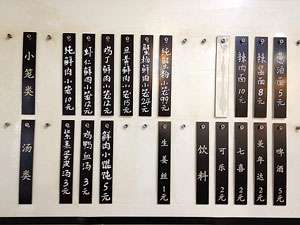 小笼类
纯鲜肉小笼10元
虾仁鲜肉小笼12元
鸡丁鲜肉小笼12元
虫草鲜肉小笼15元
蟹粉鲜肉小笼24元
纯蟹粉小笼99元
辣肉面10元
辣酱面8元
葱油面5元
汤类
紫菜蛋皮汤3元
鸡鸭血汤3元
鲜肉小馄饨5元
生姜丝1元
饮料
可乐2元
七喜2元
美年达2元
啤酒5元